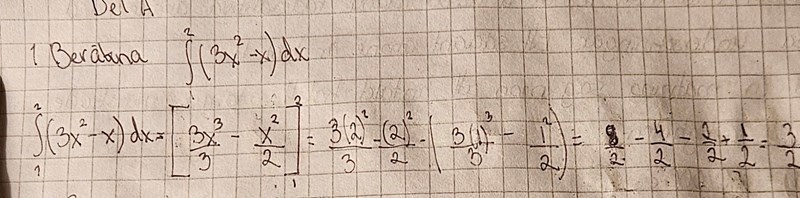 Del A
1 Beräkna ∫₁² (3x² - x) dx
∫₁² (3x² - x) dx = [3x³/3 - x²/2]₁² = 3(2)²/3 - (2)²/2 - (3(1)³/3 - 1²/2) = 8/2 - 4/2 - 2/2 + 1/2 = 3/2